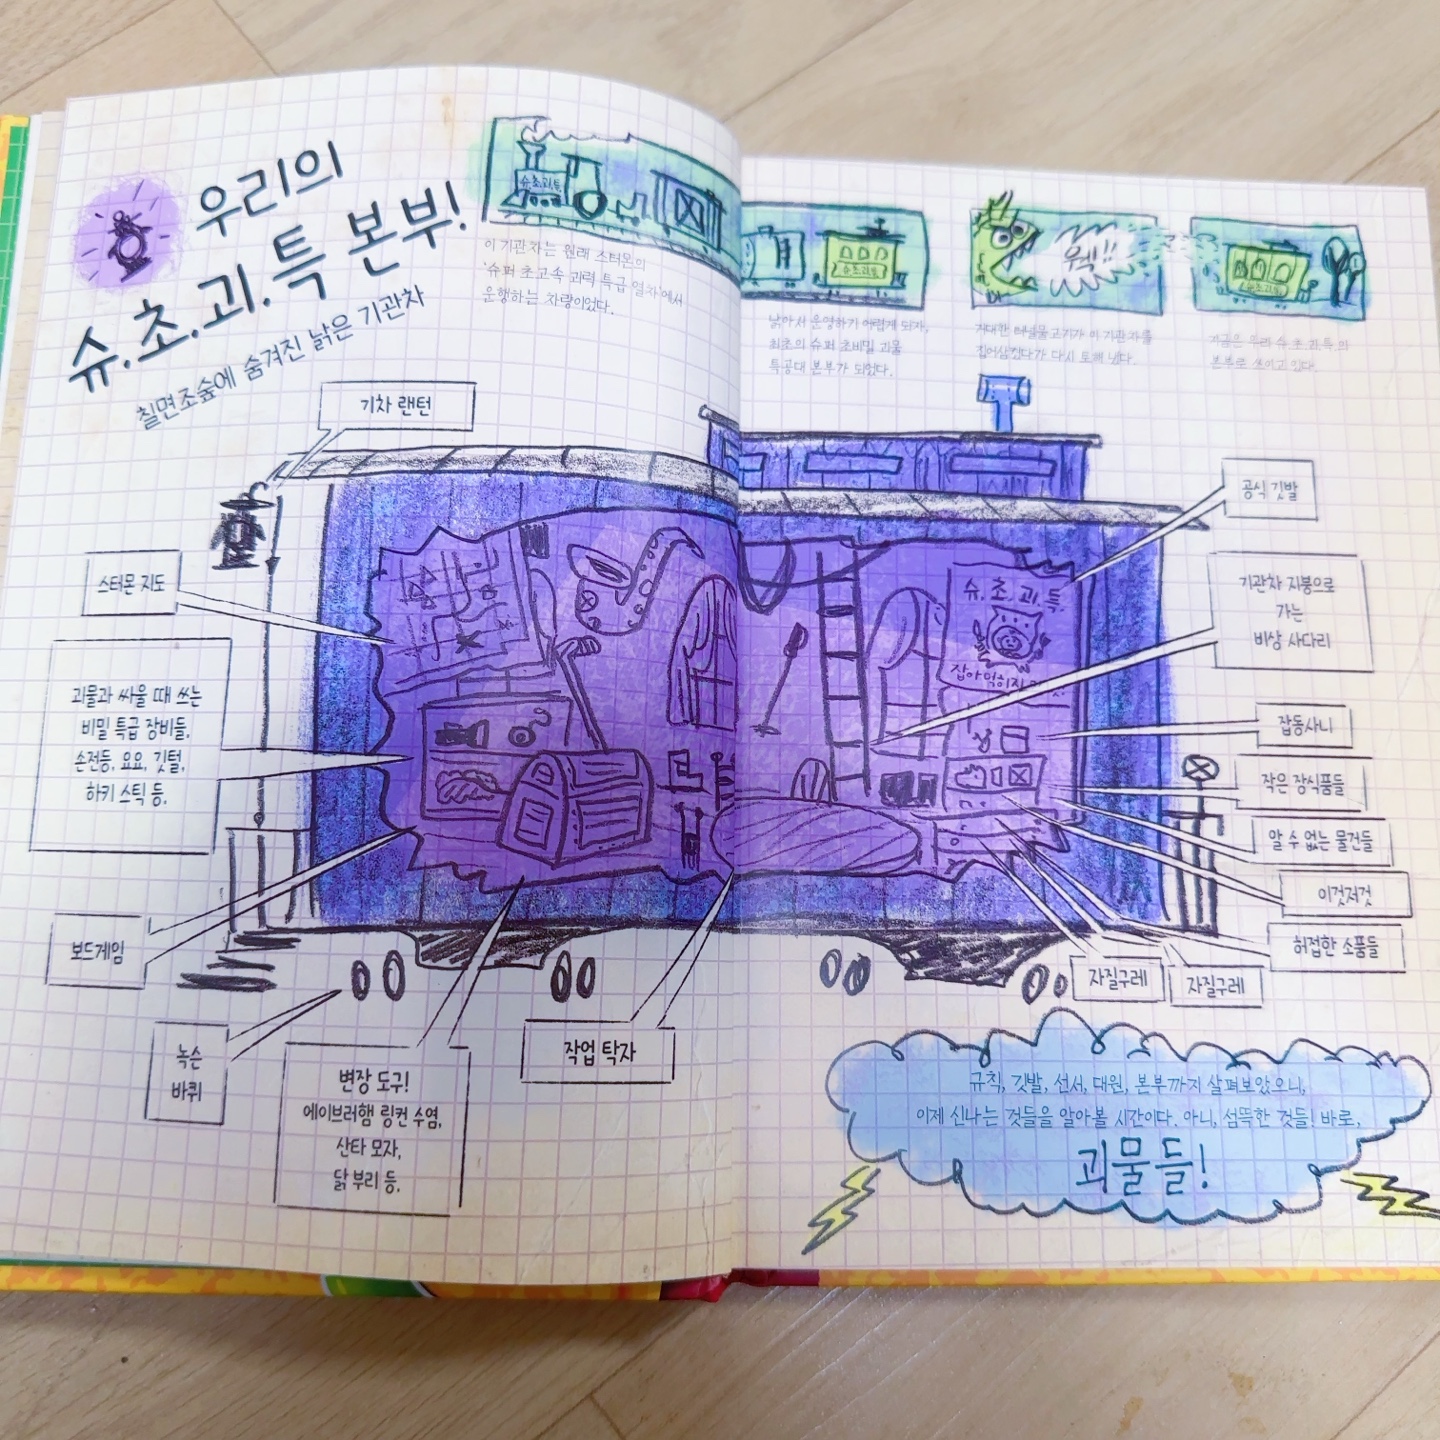 우리의
슈.초.괴.특 본부!
칠면조숲에 숨겨진 낡은 기관차
슈.초.괴.특.
이 기관차는 원래 스터몬의
'슈퍼 초고속 괴력 특급 열차'에서
운행하는 차량이었다.
슈.초.괴.특
낡아서 운영하기 어렵게 되자,
최초의 슈퍼 초비밀 괴물
특공대 본부가 되었다.
우웩!!
거대한 터널물고기가 이 기관차를
집어삼켰다가 다시 토해 냈다.
슈.초.괴.특
지금은 우리 슈.초.괴.특의
본부로 쓰이고 있다.
기차 랜턴
스터몬 지도
괴물과 싸울 때 쓰는
비밀 특급 장비들.
손전등, 요요, 깃털,
하키 스틱 등.
보드게임
녹슨
바퀴
변장 도구!
에이브러햄 링컨 수염,
산타 모자,
닭 부리 등.
작업 탁자
슈.초.괴.특.
잡아먹히지
공식 깃발
기관차 지붕으로
가는
비상 사다리
잡동사니
작은 장식품들
알 수 없는 물건들
이것저것
허접한 소품들
자질구레
자질구레
규칙, 깃발, 선서, 대원, 본부까지 살펴보았으니,
이제 신나는 것들을 알아볼 시간이다. 아니, 섬뜩한 것들! 바로,
괴물들!